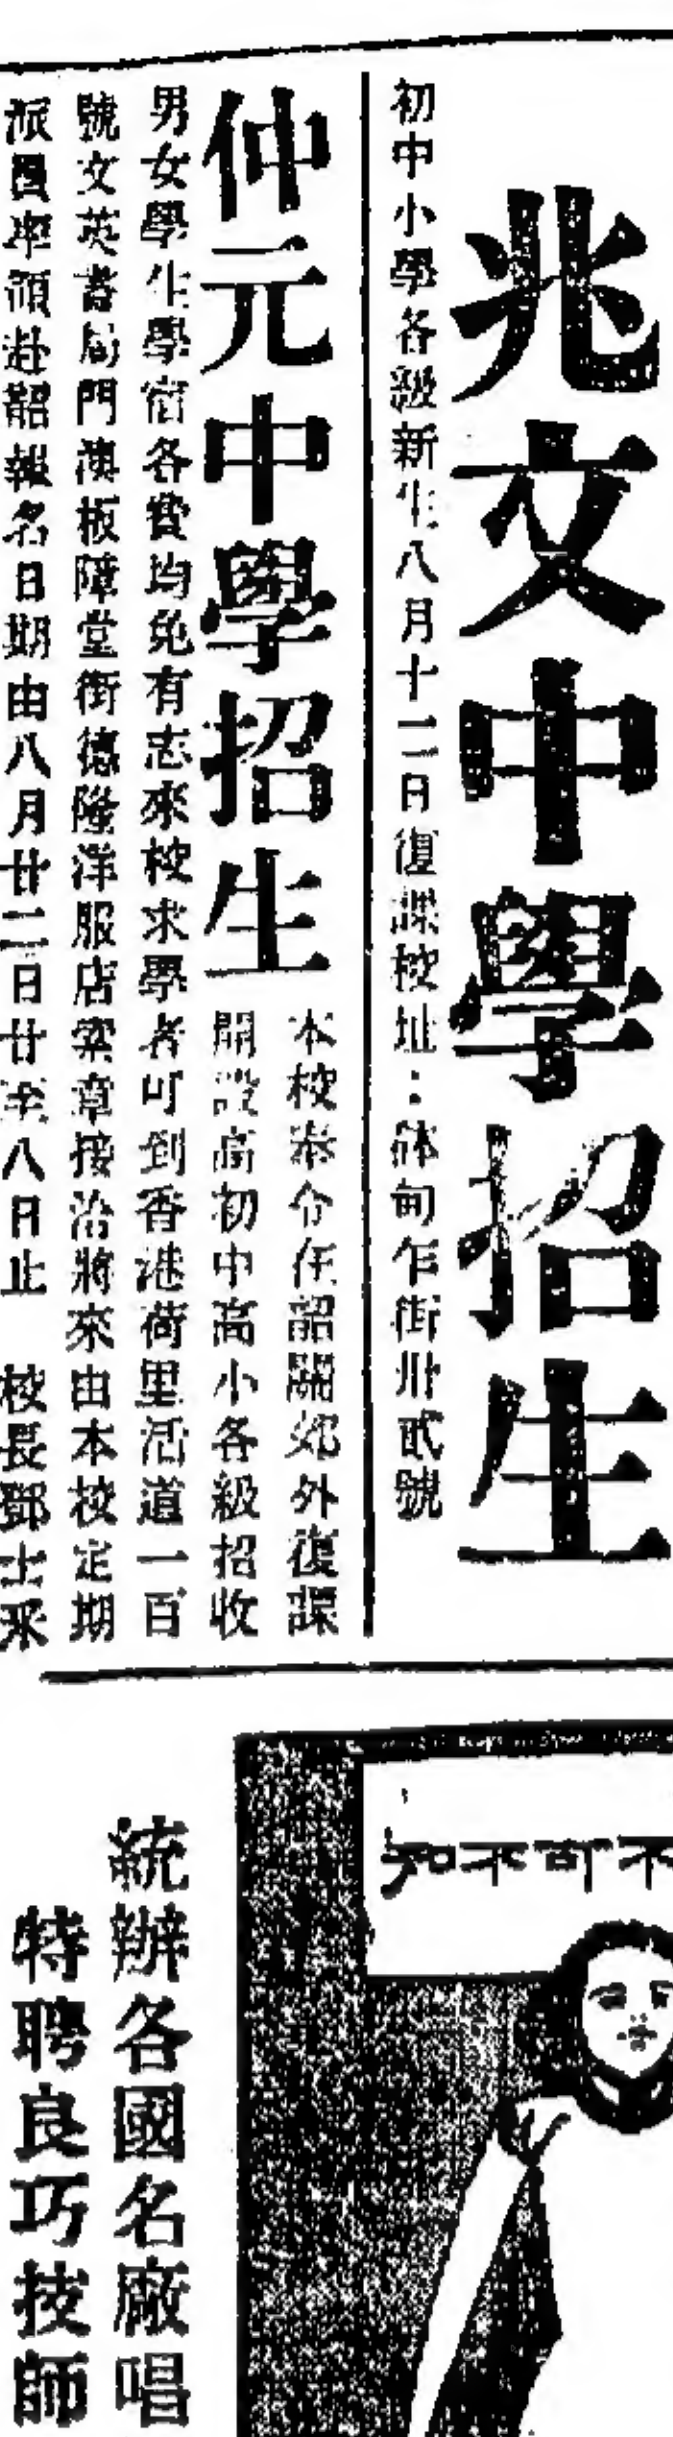 兆文中學招生
初中小學各級新生八月十二日復課校址：缽甸乍街卅貳號
仲元中學招生
本校奉令在韶關郊外復課
開設高初中高小各級招收
男女學生學宿各費均免有志來校求學者可到香港荷里活道一百
號文英書局門澳板障堂街德隆洋服店索章接洽將來由本校定期
派員率領赴韶報名日期由八月廿二日廿至八日止　校長鄧士采
不可不知
統辦各國名廠唱
特聘良巧技師